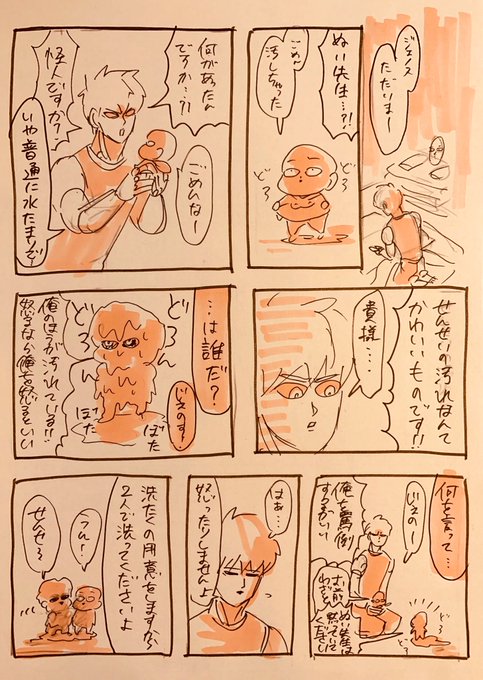 ジェノス
ただいまー
ぬい先生…?!
ごめん
汚しちゃった
どろ
どろ
何があったん
ですか…?!
ごめんなー
怪人ですか?
いや普通に水たまりでー
せんせいの汚れなんて
かわいいものです!!
貴様…
…は誰だ?
じぇのす?
どろ
どろ
ぼた
ぼた
俺のほうが汚れている!!
怒るなら俺を怒るといい
何を言って…
じぇのー
どろ
どろ
俺を罵倒
するがいい
ぬい先生は
お前
黙っていて
ください
はぁ…
怒ったりしませんよ
洗たくの用意をしますから
2人で洗ってくださいよ
うん!
せんせ〜